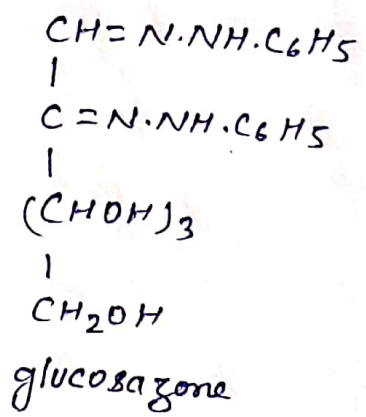 CH= N.NH.C6H5
|
C =N.NH.C6H5
|
(CHOH)3
|
CH2OH
glucosazone